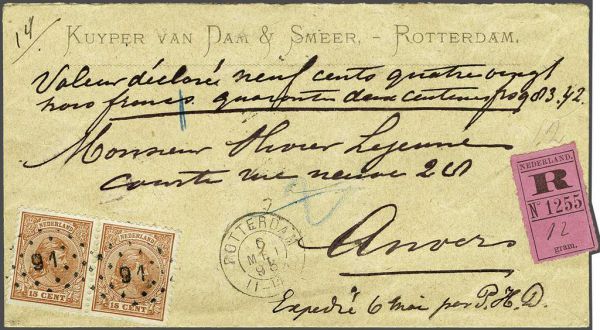 14/
KUYPER VAN DAM & SMEER, - ROTTERDAM.
Valeur déclarée neuf cents quatre vingt
trois francs quarante deux centimes frs 983.42.
Monsieur Olivier Lejeune
courte rue neuve 28
Anvers
Expedié 6 mai par P.H.D.
NEDERLAND
91.
15 CENT
NEDERLAND
91.
15 CENT
ROTTERDAM
6
MEI
95
NEDERLAND.
R
No 1255
12
gram.
12